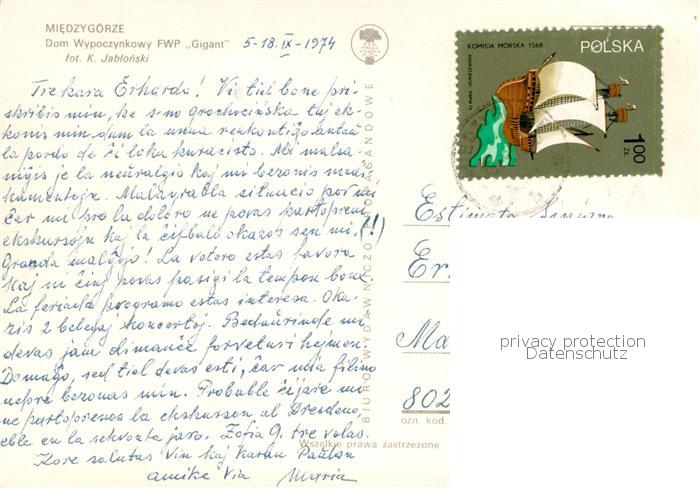 MIĘDZYGÓRZE
Dom Wypoczynkowy FWP „Gigant"
fot. K. Jabłoński
5-18.IX-1974
Tre kara Erhardo! Vi tiel bone pri-
skribis min, ke s-no grochocińska tuj ek-
konis min dum la unua renkontiĝo antaŭ
la pordo de ĉi loka kuracisto. Mi malsa-
niĝis je la neŭralgio kaj mi bezonis medi-
kamentojn. Malagrabla situacio por mi
ĉar mi pro la doloro ne povas partopreni
ekskursojn kaj la ĉifbalo okazos sen mi. (!!)
Granda malĝojo! La vetero estas favora
kaj ni ĉiuj povas pasigi la tempon bone.
La feriada programo estas interesa. Oka-
zis 2 belegaj koncertoj. Bedaŭrinde mi
devas jam dimanĉe forveturi hejmen.
Domaĝo, sed tiel devas esti, ĉar mia filino
nepre bezonas min. Probable ĉijare mi
ne partoprenos la ekskurson al Dresdeno,
eble en la sekvonta jaro. Zofia G. tre volas.
Kore salutas Vin kaj karan Paulon
amike via Maria
BIURO WYDAWNICZO PROPAGANDOWE
KOMISJA MORSKA 1568
POLSKA
1,00
ZŁ
Estimata Sinjoro
Er
Ma
802
ozn. kod.
Wszelkie prawa zastrzeżone
privacy protection
Datenschutz